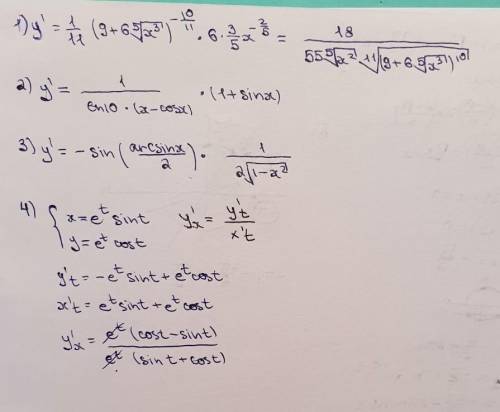 1) y' = 1/11 (9+6⁵√x³)^(-10/11) · 6 · 3/5 x^(-2/5) = 18 / (55 ⁵√x² ¹¹√(9+6⁵√x³)¹⁰)
2) y' = 1 / (ln10 · (x-cosx)) · (1+sinx)
3) y' = -sin(arcsinx / 2) · 1 / (2√1-x²)
4) { x=eᵗsint y'ₓ = y't / x't
y=eᵗcost
y't = -eᵗsint + eᵗcost
x't = eᵗsint + eᵗcost
y'ₓ = eᵗ (cost-sint) / eᵗ (sint+cost)